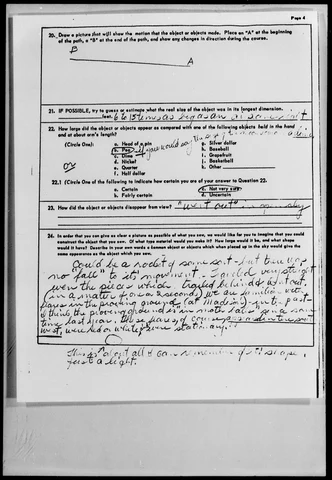 Page 4
20. Draw a picture that will show the motion that the object or objects made. Place an "A" at the beginning
of the path, a "B" at the end of the path, and show any changes in direction during the course.
B
A
21. IF POSSIBLE, try to guess or estimate what the real size of the object was in its longest dimension.
feet.
22. How large did the object or objects appear as compared with one of the following objects held in the hand
and at about arm's length?
(Circle One): a. Head of a pin
b. Pea
c. Dime
d. Nickel
e. Quarter
f. Half dollar
g. Silver dollar
h. Baseball
i. Grapefruit
j. Basketball
k. Other
if you would say
22.1 (Circle One of the following to indicate how certain you are of your answer to Question 22.
a. Certain
b. Fairly certain
c. Not very sure
d. Uncertain
23. How did the object or objects disappear from view? "Went out"
24. In order that you can give as clear a picture as possible of what you saw, we would like for you to imagine that you could
construct the object that you saw. Of what type material would you make it? How large would it be, and what shape
would it have? Describe in your own words a common object or objects which when placed up in the sky would give the
same appearance as the object which you saw.
Could be a rocket of some sort - but there was
no "fall" to its movement - I could very straight
were the pieces which trailed behind & went out.
(in a matter of 2 or 3 seconds) We are familiar with
flares in the proving ground (at Madison) - in the past -
I think the proving ground is in moth balls since some
time last year. These flares, of course
west, were red or white & were stationary.
This is about all I can remember of its shape
just a light.